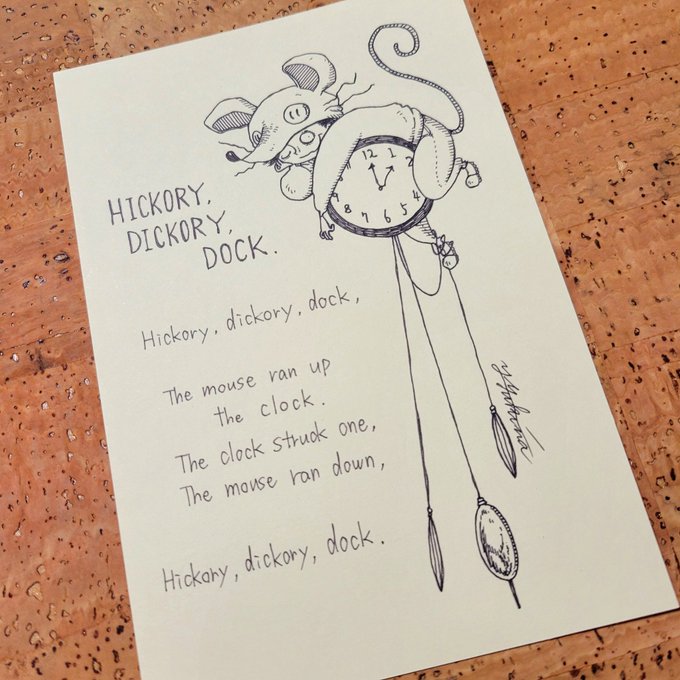 12 1 2 3 4 5 6 7 8
HICKORY,
DICKORY,
DOCK.
Hickory, dickory, dock,
The mouse ran up
the clock.
The clock struck one,
The mouse ran down,
Hickory, dickory, dock.